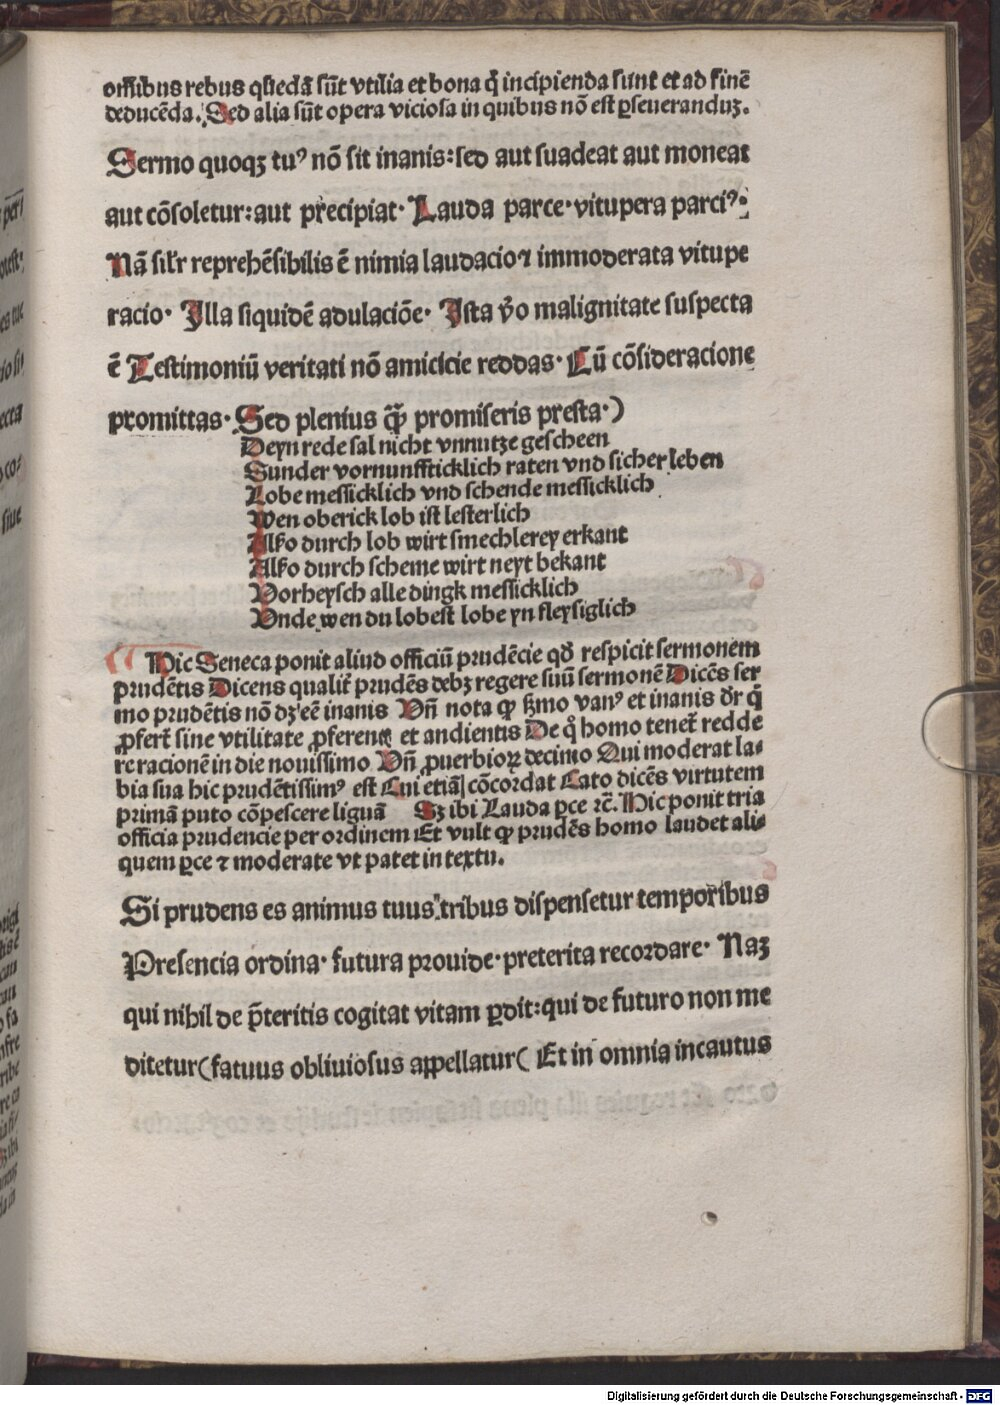 om̄ibus rebus q̄stedā sūt vtilia et bona q̄ incipienda sunt et ad finē
deducēda. Sed alia sūt opera viciosa in quibus nō est ꝑseueranduꝫ.
Sermo quoqꝫ tuꝰ nō sit inanis: sed aut suadeat aut moneat
aut cōsoletur: aut precipiat· Lauda parce· vitupera parciꝰ·
Nā sil'r reprehēsibilis ē nimia laudacio ⁊ immoderata vitupe
racio· Illa siquidē adulaciōe· Ista v̄o malignitate suspecta
ē Testimoniū veritati nō amicicie reddas· Cū cōsideracione
promittas· Sed plenius q̄ꝫ promiseris presta·)
Deyn rede sal nicht vnnutze gescheen
Sunder vornunffticklich raten vnd sicher leben
Lobe messicklich vnd schende messicklich
Wen oberick lob ist lesterlich
Alßo durch lob wirt smechlerey erkant
Alßo durch scheme wirt neyt bekant
Vorheysch alle dingk messicklich
Vnde wen du lobest lobe yn fleysiglich
Hic Seneca ponit aliud officiū prudēcie qd̄ respicit sermonem
prudētis Dicens qualit̄ prudēs debꝫ regere suū sermonē Dicēs ser
mo prudētis nō dꝫ eē inanis Vn̄ nota ꝙ s̄mo vanꝰ et inanis dr̄ q̄
ꝓfert̄ sine vtilitate ꝓferentꝭ et andientis De qͦ homo tenet̄ redde
re racionē in die nouissimo Vn̄ ꝓuerbioꝝ decimo Qui moderat la⸗
bia sua hic prudētissimꝰ est Cui etiā cōcordat Cato dicēs virtutem
primā puto cōpescere liguā Sꝫ ibi Lauda ꝑce ⁊c̄. Hic ponit tria
officia prudencie per ordinem Et vult ꝙ prudēs homo laudet ali⸗
quem ꝑce ⁊ moderate vt patet in textu.
Si prudens es animus tuus tribus dispensetur temporibus
Presencia ordina· futura prouide· preterita recordare· Naꝫ
qui nihil de p̄teritis cogitat vitam ꝑdit: qui de futuro non me
ditetur( fatuus obliuiosus appellatur( Et in omnia incautus
Digitalisierung gefördert durch die Deutsche Forschungsgemeinschaft - DFG